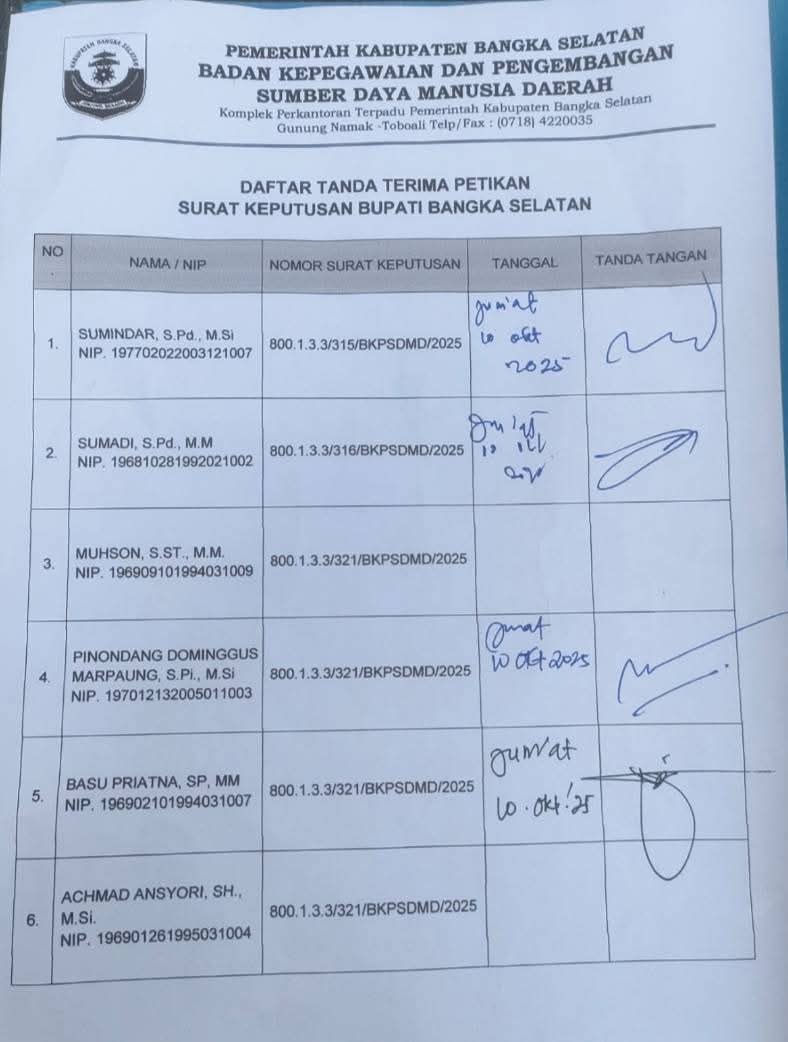 KABUPATEN BANGKA SELATAN
PEMERINTAH KABUPATEN BANGKA SELATAN
BADAN KEPEGAWAIAN DAN PENGEMBANGAN
SUMBER DAYA MANUSIA DAERAH
Komplek Perkantoran Terpadu Pemerintah Kabupaten Bangka Selatan
Gunung Namak -Toboali Telp/Fax : (0718) 4220035
DAFTAR TANDA TERIMA PETIKAN
SURAT KEPUTUSAN BUPATI BANGKA SELATAN
NO NAMA / NIP NOMOR SURAT KEPUTUSAN TANGGAL TANDA TANGAN
1. SUMINDAR, S.Pd., M.Si
NIP. 197702022003121007
800.1.3.3/315/BKPSDMD/2025
Jum'at
10 okt
2025
2. SUMADI, S.Pd., M.M
NIP. 196810281992021002
800.1.3.3/316/BKPSDMD/2025
3. MUHSON, S.ST., M.M.
NIP. 196909101994031009
800.1.3.3/321/BKPSDMD/2025
4. PINONDANG DOMINGGUS
MARPAUNG, S.Pi., M.Si
NIP. 197012132005011003
800.1.3.3/321/BKPSDMD/2025
Jumat
10 Okt 2025
5. BASU PRIATNA, SP, MM
NIP. 196902101994031007
800.1.3.3/321/BKPSDMD/2025
Jum'at
10. Okt '25
6. ACHMAD ANSYORI, SH.,
M.Si.
NIP. 196901261995031004
800.1.3.3/321/BKPSDMD/2025